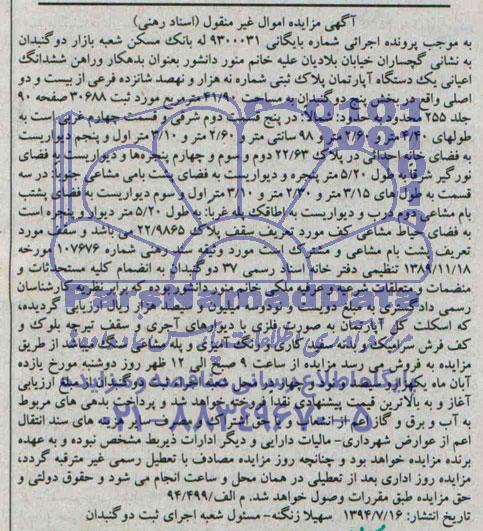 آگهی مزایده اموال غیر منقول (اسناد رهنی)
به موجب پرونده اجرائی شماره بایگانی ۹۳۰۰۰۳۱ له بانک مسکن شعبه بازار دوگنبدان
به نشانی گچساران خیابان بلادیان علیه خانم منور دانشور بعنوان بدهکار وراهن ششدانگ
اعیانی یک دستگاه آپارتمان پلاک ثبتی شماره نه هزار و نهصد شانزده فرعی از بیست و دو
اصلی واقع در بخش پنج دوگنبدان به مساحت ۴۱/۹۰ مترمربع مورد ثبت ۳۰۶۸۸ صفحه ۹۰
جلد ۲۵۵ محدود به حدود: شمالا: در پنج قسمت دوم شرقی و قسمت چهارم غربی است به
طولهای ۴/۴۰ متر و ۲/۶۰ متر و ۹۸ سانتی متر و ۲/۶۰ متر و ۳/۱۰ متر اول و پنجم دیواریست
به فضای خانه احداثی در پلاک ۲۲/۶۳ دوم و سوم و چهارم پنجره‌ها و دیواریست به فضای
نورگیر شرقا: به طول ۵/۲۰ متر پنجره و دیواریست به فضای پشت بامی مشاعی جنوبا: در سه
قسمت به طول های ۳/۱۵ متر و ۲/۳۰ متر و ۳/۱۰ متر اول و سوم دیواریست به فضای پشت
بام مشاعی دوم درب و دیواریست به اطاقک پله غربا: به طول ۵/۲۰ متر دیوار و پنجره است
به فضای حیاط مشاعی کف مورد تعریف سقف پلاک ۲۲/۹۸۶۵ می باشد و سقف مورد
تعریف پشت بام مشاعی و مشترک است مورد وثیقه سند رهنی شماره ۱۰۷۶۷۶ مورخه
۱۳۸۹/۱۱/۱۸ تنظیمی دفتر خانه اسناد رسمی ۳۷ دوگنبدان به انضمام کلیه مستحدثات و
منضمات و متعلقات شرعیه و عرفیه ملکی خانم منور دانشور بوده که برابر نظریه کارشناسان
رسمی دادگستری به مبلغ دویست و نودوسه میلیون و سیصد هزار ریال ارزیابی گردیده،
که اسکلت کل آپارتمان به صورت فلزی با دیوارهای آجری و سقف تیرچه بلوک و
کف فرش سرامیک و بدنه سفید کاری و رنگ آمیزی و پله مشاعی سنگ میباشد از طریق
مزایده به فروش می رسد مزایده از ساعت ۹ صبح الی ۱۲ ظهر روز دوشنبه مورخ یازده
آبان ماه یکهزار و سیصد و نود و چهار در محل شعبه اجرای ثبت دوگنبدان از مبلغ ارزیابی
آغاز و به بالاترین قیمت پیشنهادی نقدا فروخته خواهد شد و پرداخت بدهی های مربوط
به آب و برق و گاز اعم از انشعاب و یا حق اشتراک و مصرف و سایر هزینه های سند انتقال
اعم از عوارض شهرداری- مالیات دارایی و دیگر ادارات ذیربط مشخص نبوده و به عهده
برنده مزایده خواهد بود و چنانچه روز مزایده مصادف با تعطیل رسمی غیر مترقبه گردد،
مزایده روز اداری بعد از تعطیلی در همان محل و ساعت انجام می شود و حقوق دولتی و
حق مزایده طبق مقررات وصول خواهد شد. م الف/۹۴/۴۹۹
تاریخ انتشار: ۱۳۹۴/۷/۱۶ سهیلا زنگنه- مسئول شعبه اجرای ثبت دوگنبدان
ParsNamadData
پایگاه اطلاع رسانی مناقصه و مزایده
۰۲۱-۸۸۳۴۹۶۷۰-۵